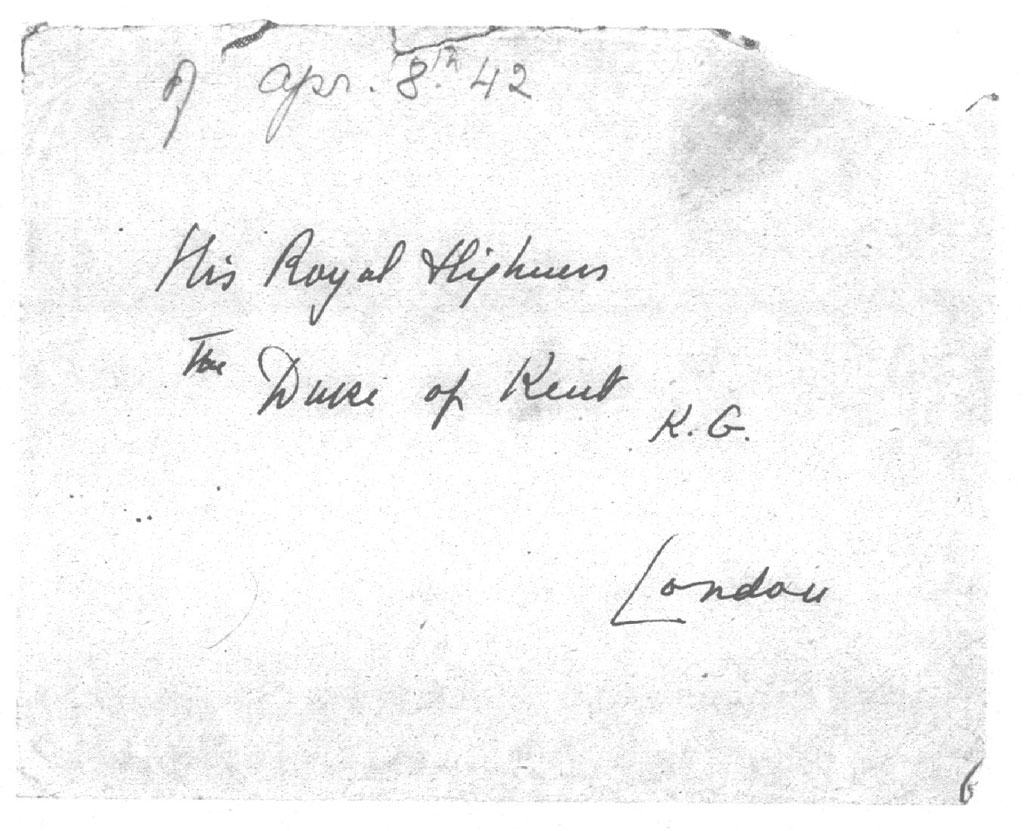 of Apr. 8th 42
His Royal Highness
The Duke of Kent
K.G.
London